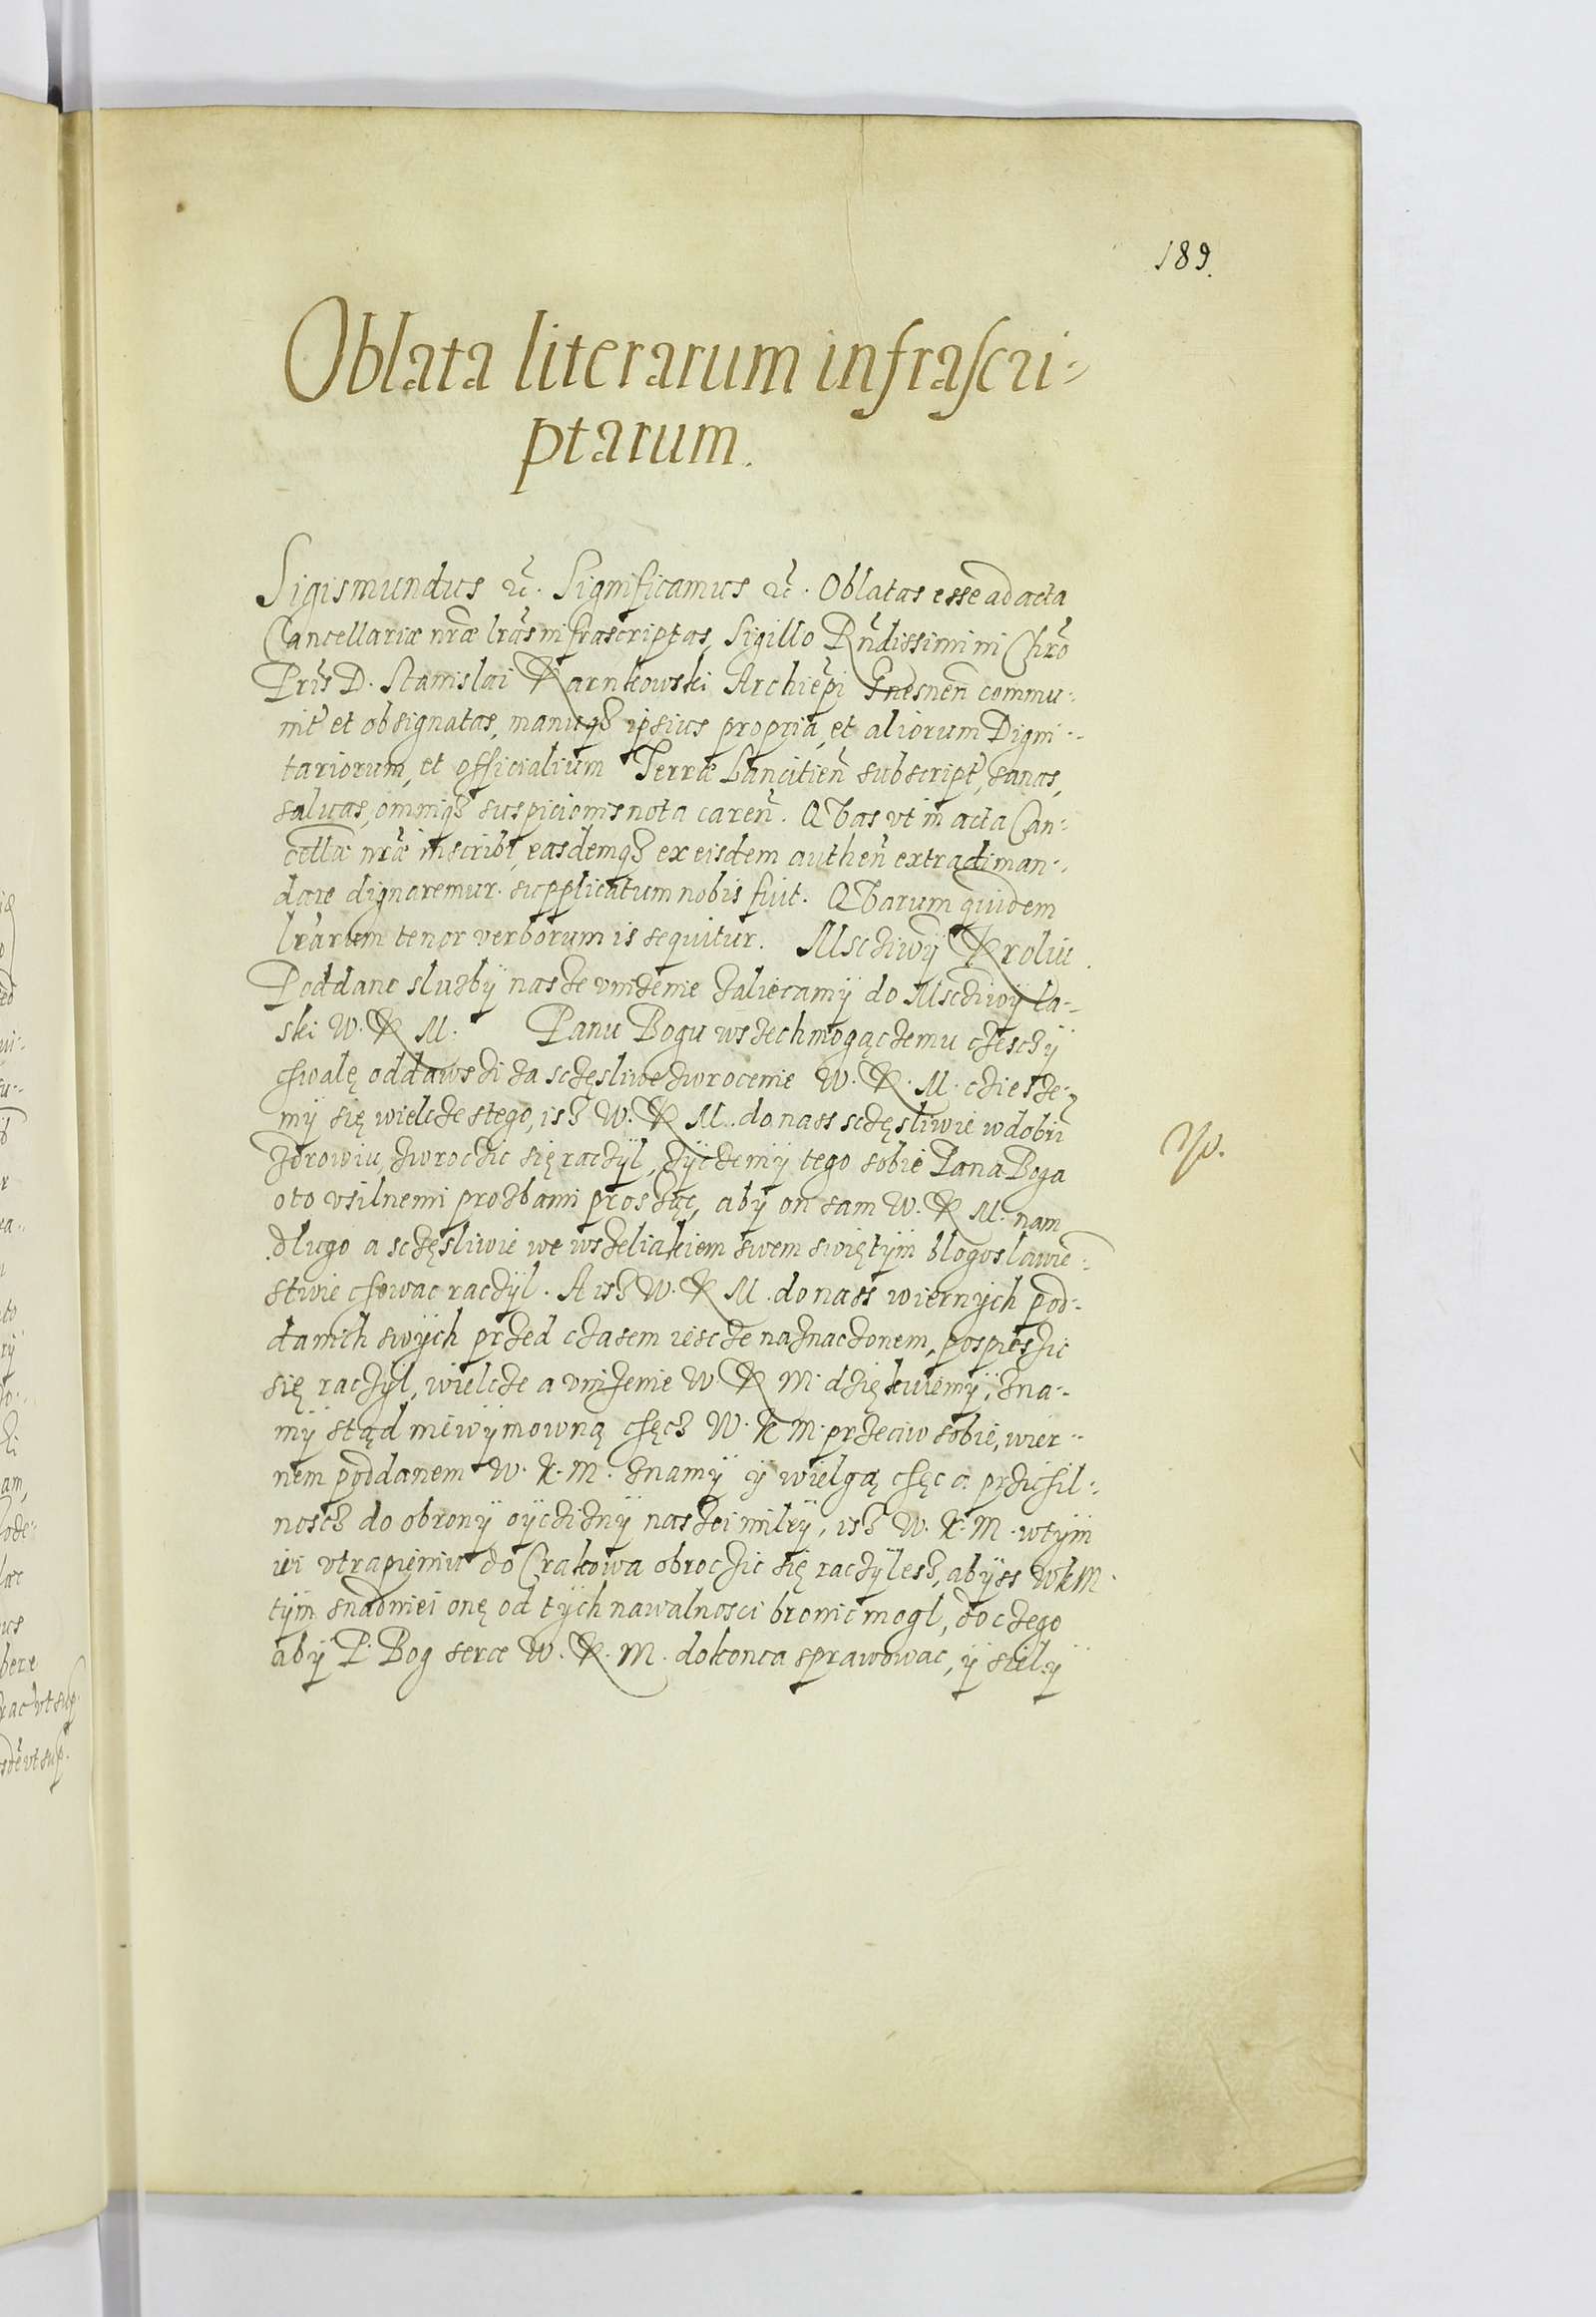 189.
Oblata literarum infrascri-
ptarum.
Sigismundus etc. Significamus etc. Oblatas esse ad acta
Cancellariæ nr̃æ lr̃as infrascriptas, Sigillo Rñdissimi in Chr̃o
Pr̃is D. Stanislai Karnkowski Archiep̃i Gnesneñ commu-
nit̃ et obsignatas, manuqȝ ipsius propria, et aliorum Digni-
tariorum, et officialium Terræ Lancitieñ subscript̃, sanas,
saluas, omniqȝ suspicionis nota careñ. Qvas vt in acta Can-
cellæ nr̃æ inscribi, easdemqȝ ex eisdem autheñ extradi man-
dare dignaremur. supplicatum nobis fuit. Qvarum quidem
lr̃arum tenor verborum is sequitur. Msciwy Krolu.
Poddane sluzbÿ nasze vnizenie zaliecamÿ do Msciwÿ la-
ski W. K M. Panu Bogu wszechmogączemu czesczÿ
chwalę oddawszi za sczęsliwe zwrocenie W. K. M. cziesze-
mÿ się wielcze stego, isz W. K M. do nass sczęsliwie w dobrĩ
zdrowiu, zwroczic się raczÿl, zÿczemÿ tego sobie Pana Boga
oto vsilnemi prozbami prosząc, abÿ on sam W. K M. nam
dlugo a sczęsliwie we wszeliakiem swem swiętÿm blogoslawie-
stwie chowac raczÿl. A isz W. K M. do nass wiernÿch pod-
danich swÿch przed czasem iescze naznaczonem, pospieszic
się raczÿl, wielcze a vnizenie W. K M. dziękuiemÿ, zna-
mÿ stąd niewÿmowną chęcz W. K M. przeciw sobie, wier-
nem poddanem W. K. M. znamÿ ÿ wielgą chęc a przichil-
noscz do obronÿ oÿcziznÿ naszei milÿ, isz W. K. M. wtÿm
iei vtrapieniu do Crakowa obroczic się raczÿlesz, abÿss WKM.
tÿm snadniei onę od tÿch nawalnosci bronic mogl, do czego
abÿ P. Bog serce W. K. M. do konca sprawowac, ÿ silÿ